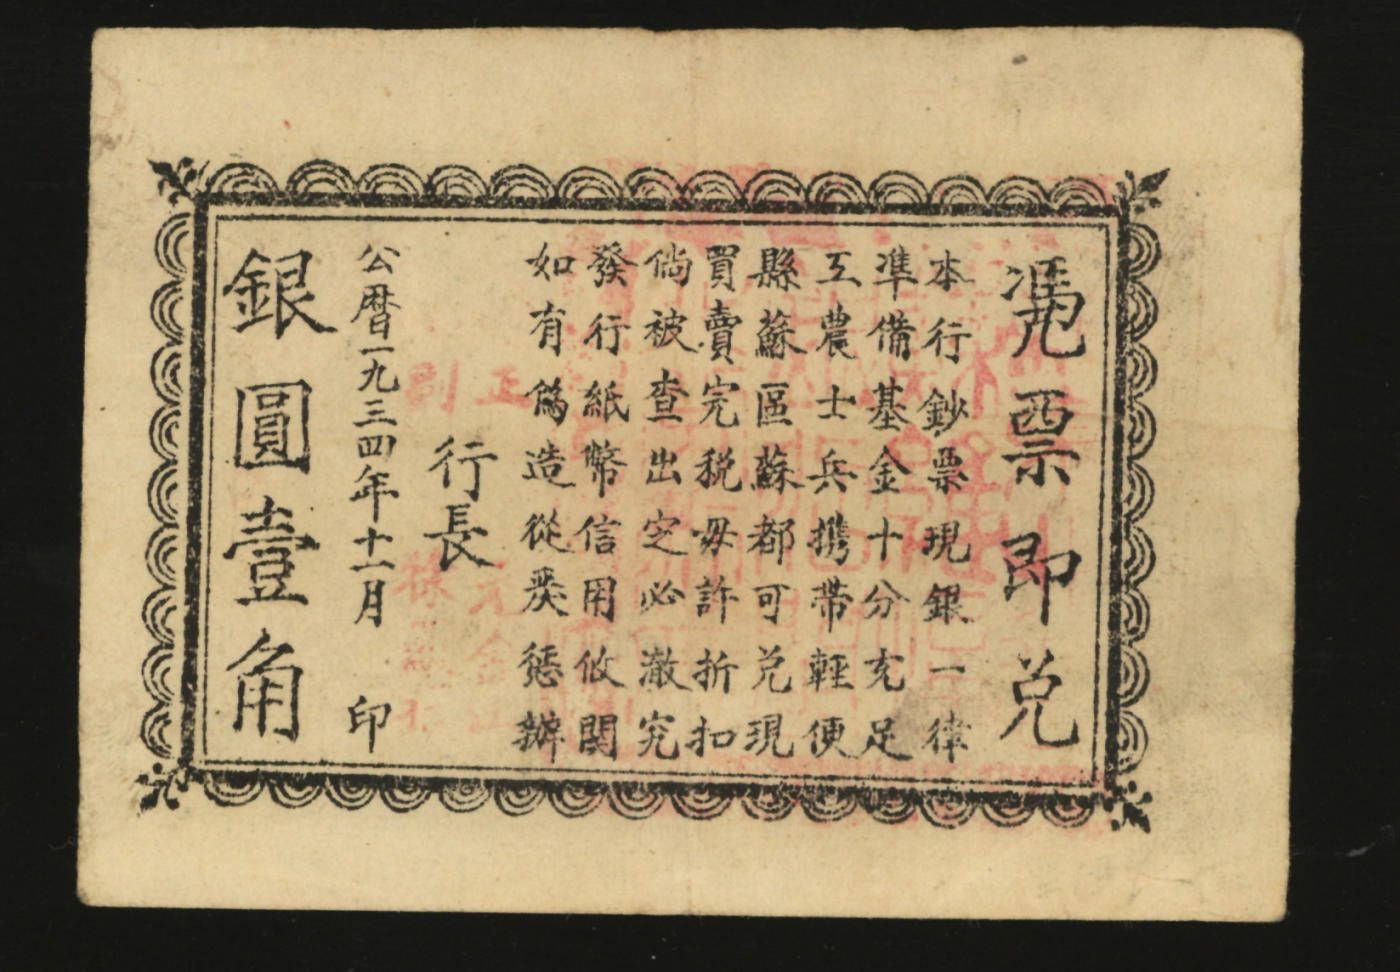 憑票即兌
本行鈔票現銀一律
準備基金十分充足
工農士兵携帶輕便
縣蘇區蘇都可兌現
買賣完税毋許折扣
倘被查出定必澈究
發行紙幣信用攸関
如有偽造從嚴惩辦
正
副
行長
公曆一九三四年十一月 印
銀圓壹角